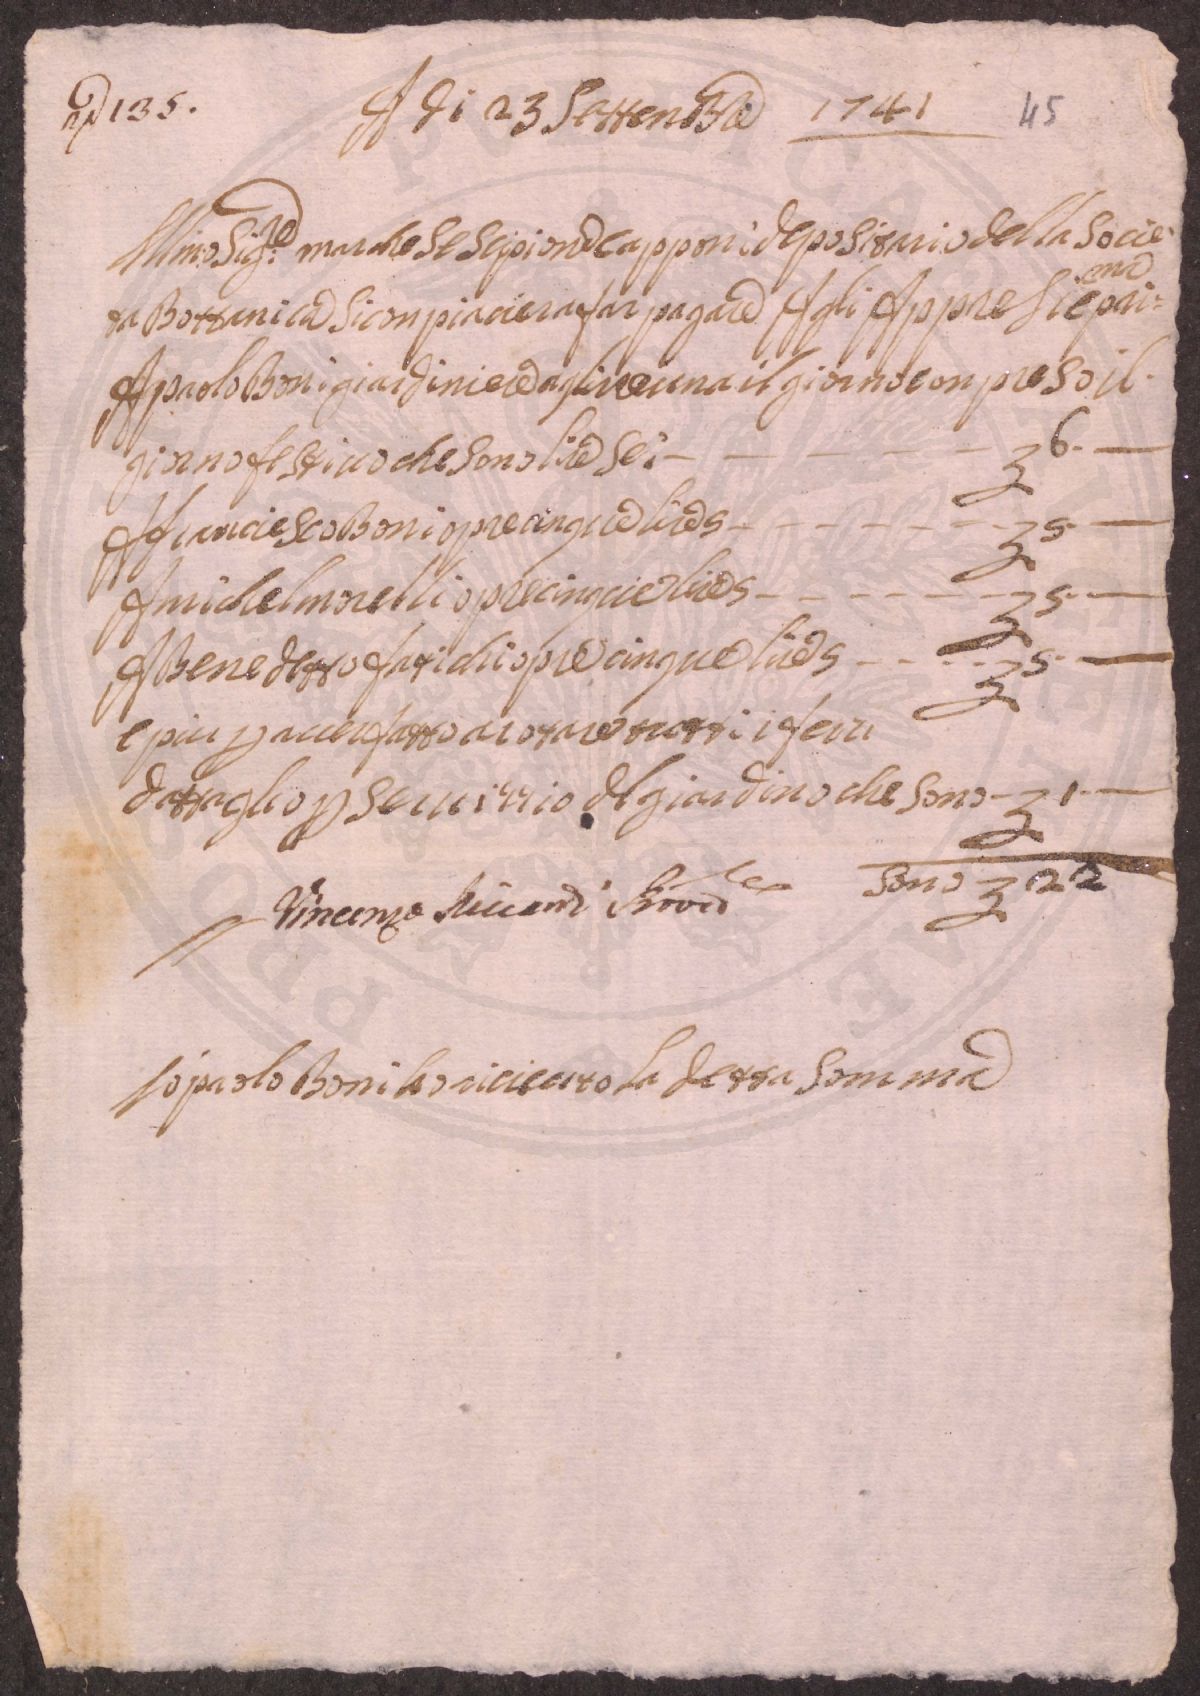 135.
A di 23 Settenbre 1741
45
Illmo Sigre marchese scipione capponi depositario della Socie
ta Bottanica si conpiacierà far pagare Agli Appresi e pri=
ma
A paolo Boni giardiniere a glire una il giorno conpreso il
giorno festiuo che sono lire sei - - - - - - - £ 6. —
A franciesco Boni opre cinque lire 5 - - - - - - - £ 5. —
A michel morelli opre cinque lire 5 - - - - - - - £ 5. —
A Benedetto fatichi opre cinque lire 5 - - - - £ 5. —
e piu p auer fatto arotare tutti i ferri
dattaglio p seruizio del giardino che sono - £ 1. —
sono £ 22
Vincenzo Riccardi Provre
Io paolo Boni ho riceuto la detta somma